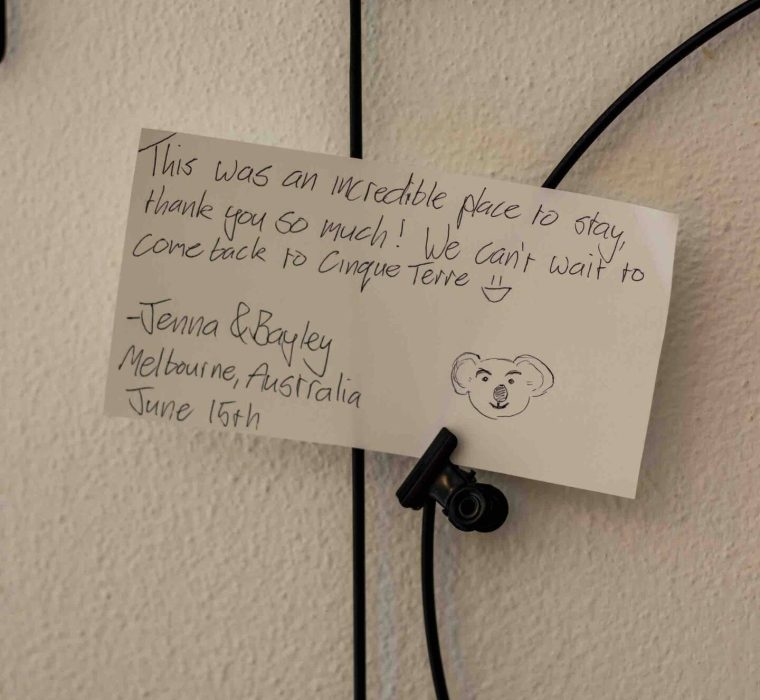 This was an incredible place to stay,
thank you so much! We can't wait to
come back to Cinque Terre
-Jenna & Bayley
Melbourne, Australia
June 15th